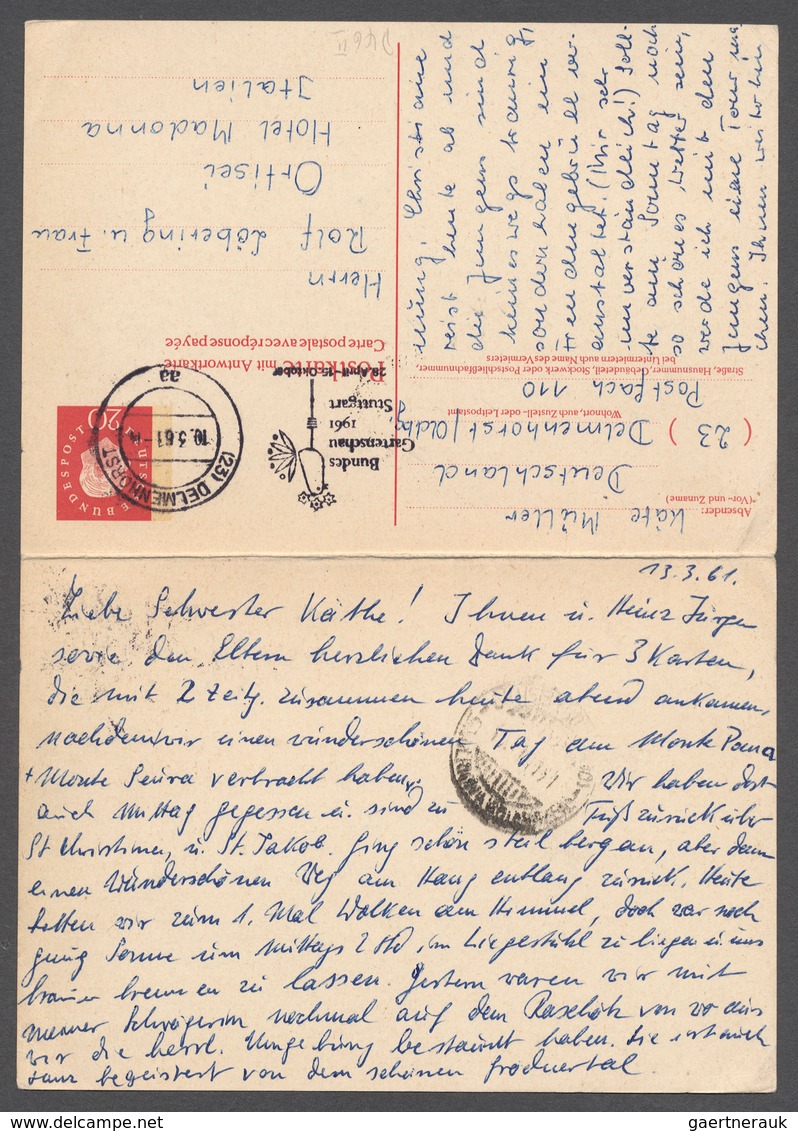 D 46 II
Herrn
Rolf Löbering u. Frau
Ortisei
Hotel Madonna
Italien
Postkarte mit Antwortkarte
Carte postale avec réponse payée
20
DEUTSCHE BUNDESPOST
(23) DELMENHORST
10.3.61
aa
Bundes
Gartenschau
1961
Stuttgart
28. April - 15. Oktober
Absender:
*Vor- und Zuname)
Käte Müller
Deutschland
(23) Delmenhorst/Oldbg.
Wohnort, auch Zustell- oder Leitpostamt
Postfach 110
Straße, Hausnummer, Gebäudeteil, Stockwerk oder Postschließfachnummer,
bei Untermietern auch Name des Vermieters
nung. Christiane
reist heute ab und
die Jungens sind
keineswegs traurig,
sondern haben ein
Freudengebrüll ver-
anstaltet. (Mir sehr
unverständlich!) Soll-
te am Sonntag noch
so schönes Wetter sein,
werde ich mit den
Jungens eine Tour ma
chen. Ihnen weiterhin
13.3.61.
Liebe Schwester Käthe! Ihnen u. Heinz Jürgen
sowie den Eltern herzlichen Dank für 3 Karten,
die mit 2 Zeitg. zusammen heute abend ankamen,
nachdem wir einen wunderschönen Tag am Monte Pana
+ Monte Seura verbracht haben. Wir haben dort
auch Mittag gegessen u. sind zu Fuß zurück über
St Christinen, u. St. Jakob. Ging schön steil bergan, aber dann
einen wunderschönen Weg am Hang entlang zurück. Heute
hatten wir zum 1. Mal Wolken am Himmel, doch war noch
genug Sonne um Mittags 2 Std im Liegestuhl zu liegen u. uns
braun brennen zu lassen. Gestern waren wir mit
meiner Schwägerin nochmal auf dem Raschötz von wo aus
wir die herrl. Umgebung bestaunt haben. Sie ist auch
ganz begeistert von dem schönen Grödnertal.
gaertnerauk